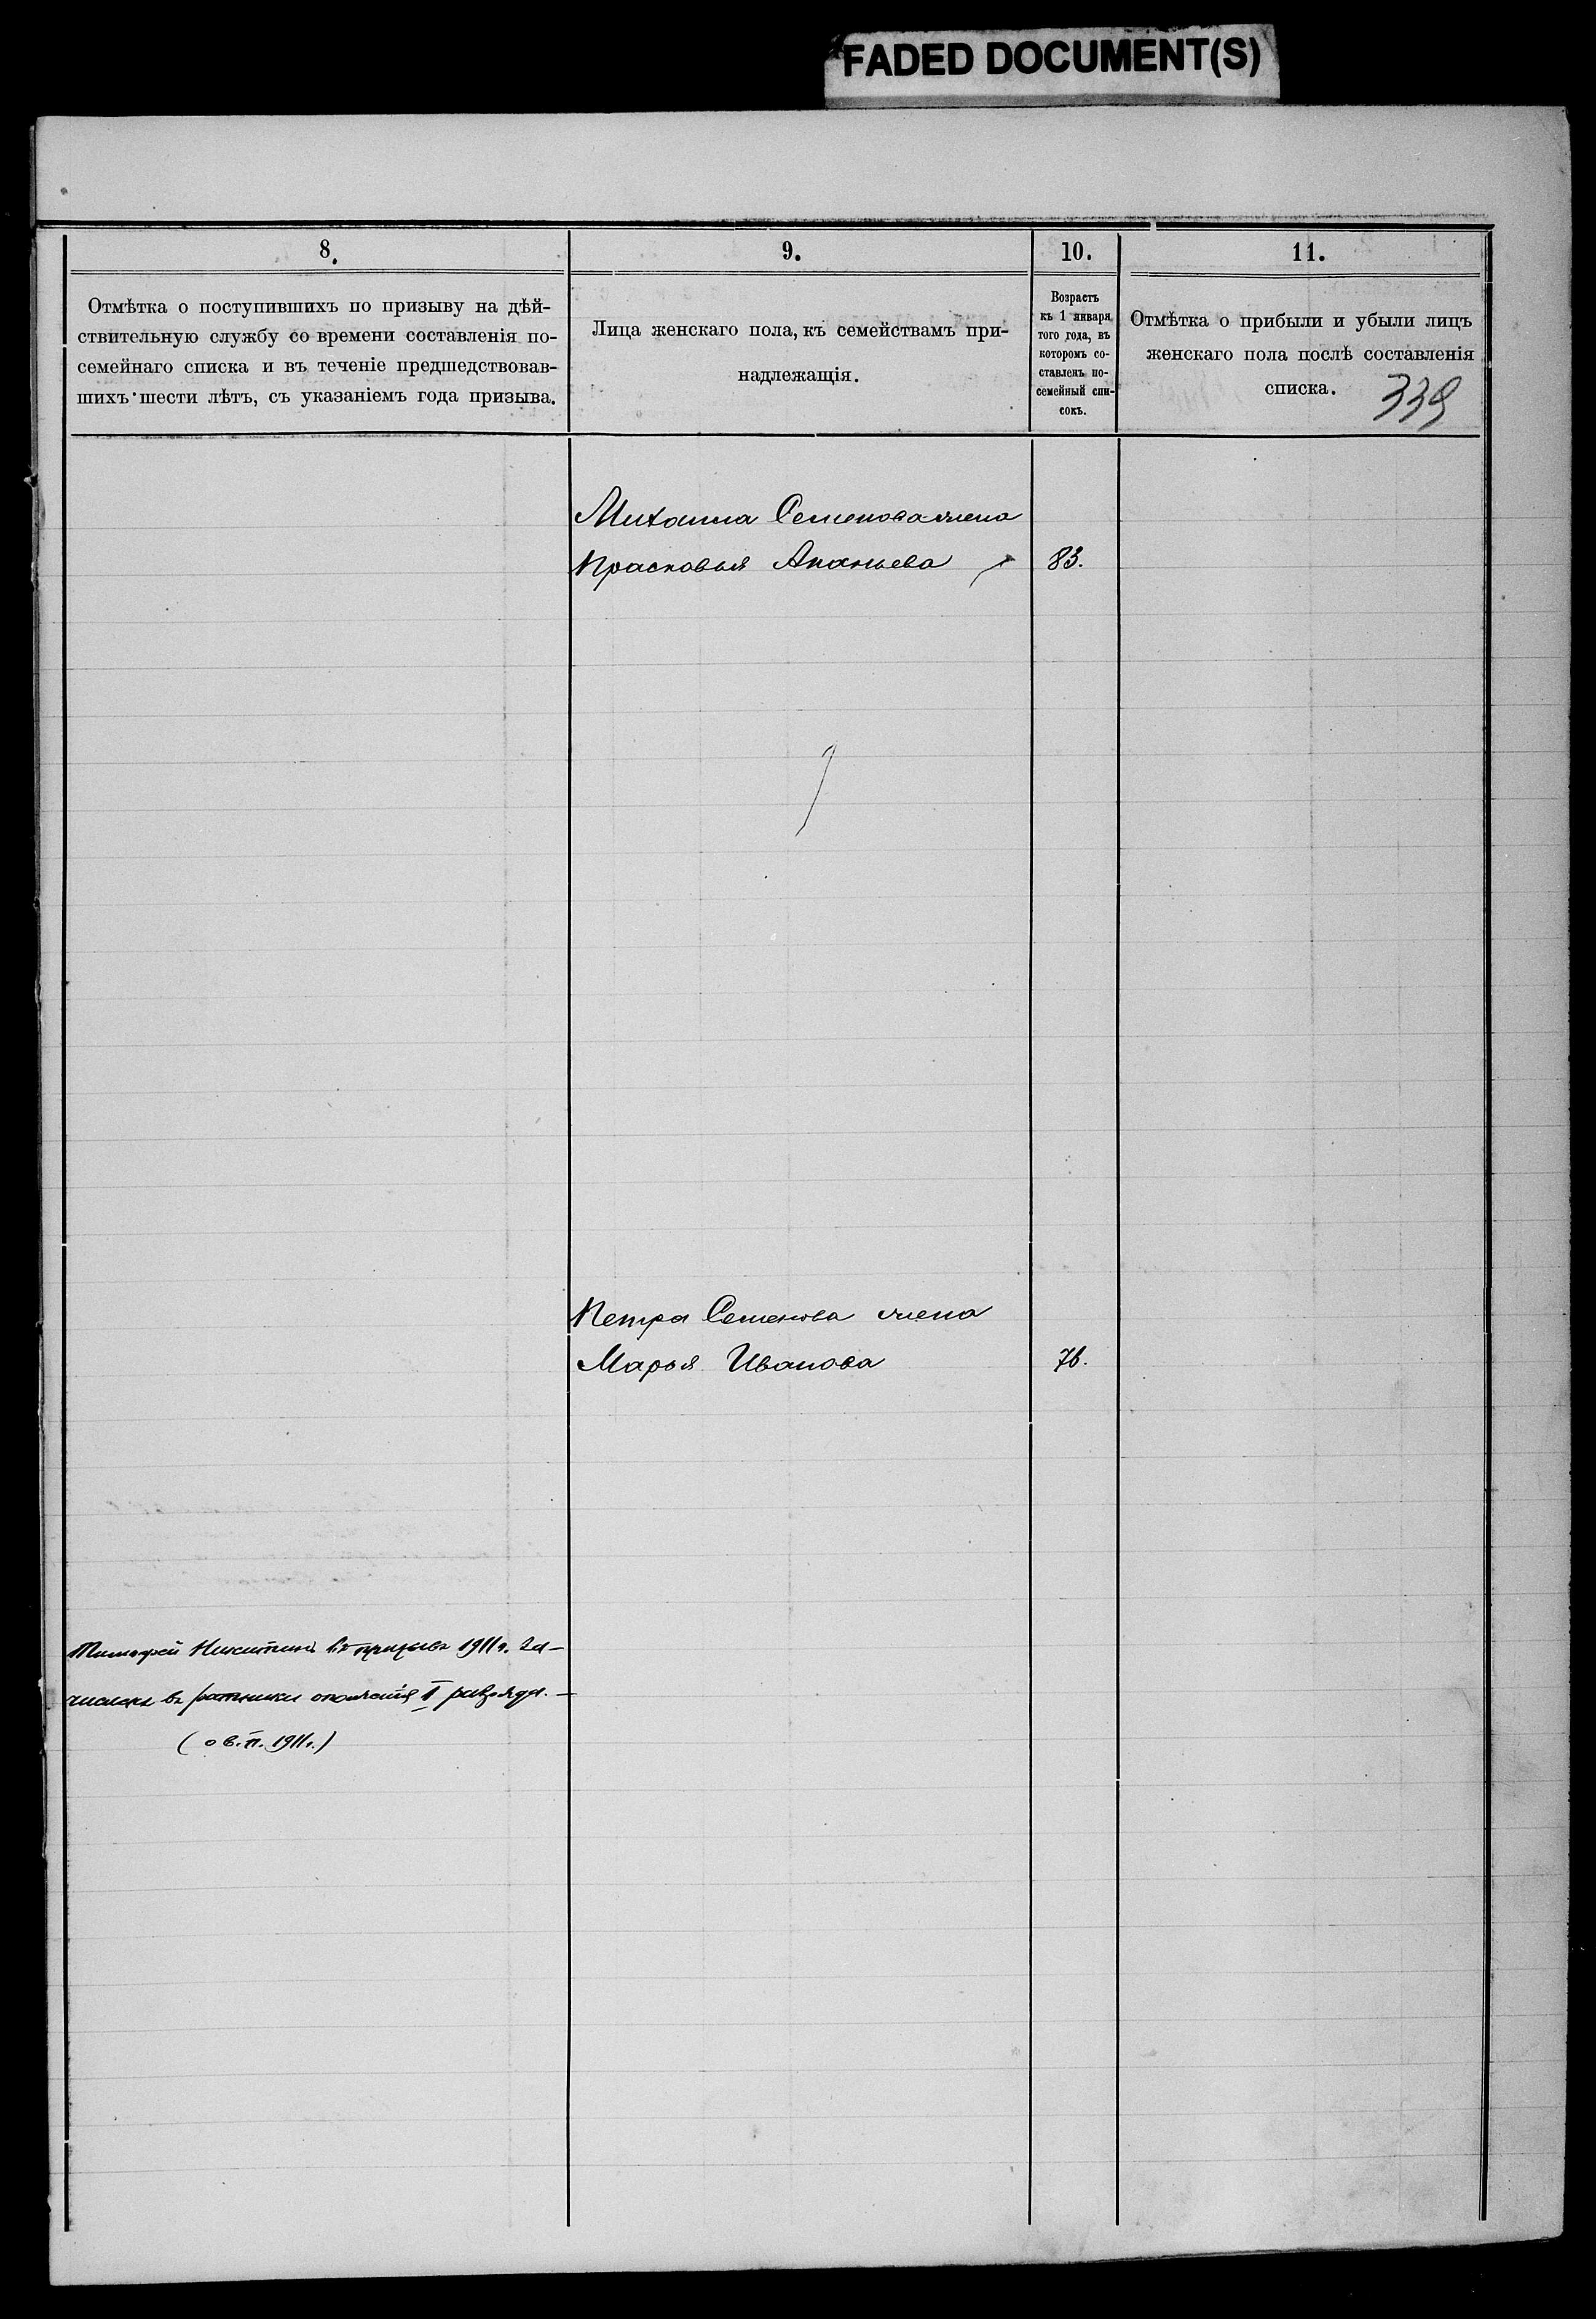 FADED DOCUMENT(S)
8.
Отмѣтка о поступившихъ по призыву на дѣй-
ствительную службу со времени составленія по-
семейнаго списка и въ теченіе предшедствовав-
шихъ шести лѣтъ, съ указаніемъ года призыва.
9.
Лица женскаго пола, къ семействамъ при-
надлежащія.
10.
Возрастъ
къ 1 января
того года, въ
которомъ со-
ставленъ по-
семейный спи-
сокъ.
11.
Отмѣтка о прибыли и убыли лицъ
женскаго пола послѣ составленія
списка.
339
Михаила Семенова жена
Прасковья Ананьева 83.
Петра Семенова жена
Марья Иванова 76.
Тимофей Никитинъ въ призывъ 1911 г. за-
численъ въ ратники ополченія I разряда.
(о в. п. 1911 г.)